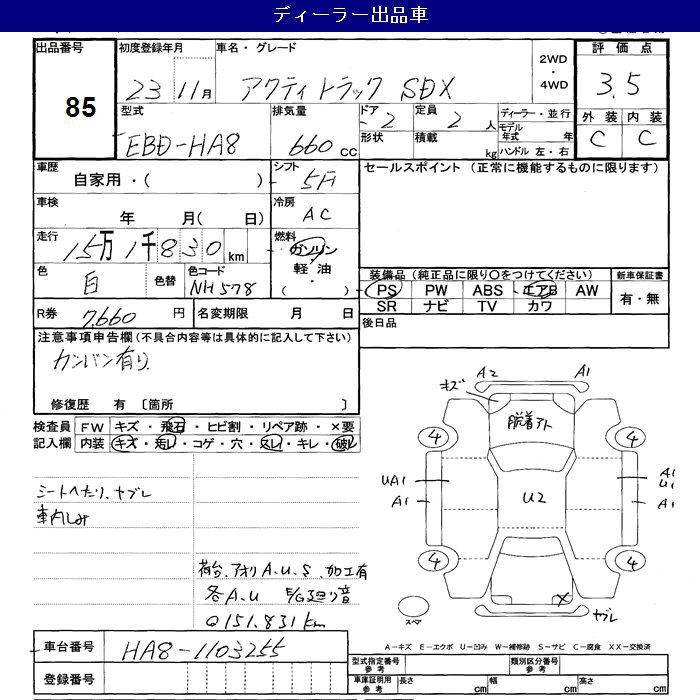 ディーラー出品車
出品番号 85
初度登録年月 23 11月
車名・グレード アクティトラック SDX
2WD・4WD
評価点 3.5
外装 C 内装 C
型式 EBD-HA8
排気量 660cc
ドア 2
形状
定員 2人
積載 kg
ディーラー・並行
モデル年式 年
ハンドル 左・右
車歴 自家用・( )
シフト 5F
セールスポイント (正常に機能するものに限ります)
車検 年 月( 日)
冷房 AC
走行 15万1千830km
燃料 ガソリン・軽油・( )
色 白
色替
色コード NH578
装備品(純正品に限り〇をつけてください)
PS PW ABS エアB AW
SR ナビ TV カワ
新車保証書 有・無
R券 7,660円
名変期限 月 日
後日品
注意事項申告欄(不具合内容等は具体的に記入して下さい)
カンバン有り
修復歴 有〔箇所 〕
検査員記入欄
FW キズ・飛石・ヒビ割・リペア跡・×要
内装 キズ・汚レ・コゲ・穴・スレ・キレ・破レ
シートヘたり、ヤブレ
車内しみ
荷台、アオリA.U.S、加工有
各A.U E/G廻り音
Q151.831km
キズ A2 A1
脱着アト
4 4
UA1 A1
U2
A1 U1
A1
4 4
スペア
× ヤブレ
A-キズ E-エクボ U-凹み W-補修跡 S-サビ C-腐食 XX-交換済
車台番号 HA8-1103255
登録番号
型式指定番号 参考
類別区分番号 参考
車庫証明用 参考 長さ cm 幅 cm 高さ cm